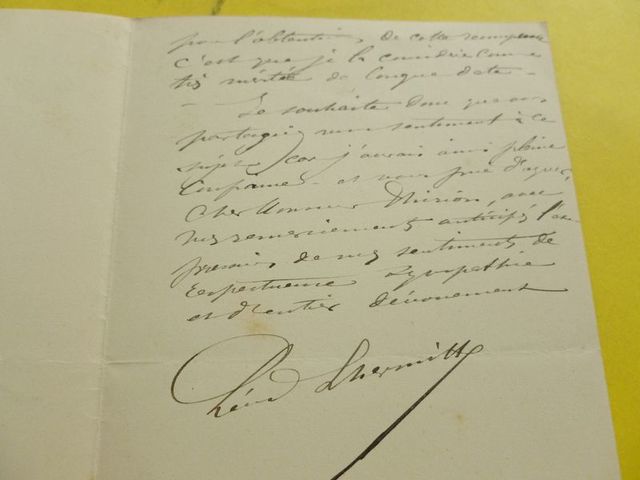 pour l'obtention de cette récompense
c'est que je la considère comme
très méritée de longue date -
- Je souhaite donc que vous
partagiez mon sentiment à ce
sujet, car j'aurais ainsi pleine
confiance - et vous prie d'agréer,
Cher Monsieur, avec
mes remerciements anticipés l'ex-
pression de mes sentiments de
respectueuse sympathie
et d'entier dévouement
Léon Lhermitte